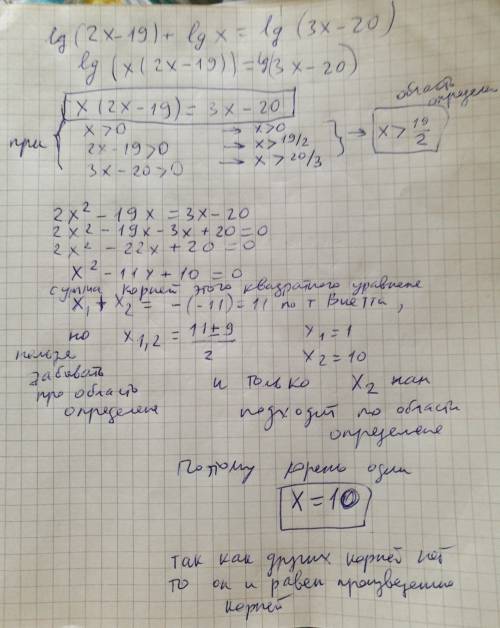 lg(2x-19)+ lg x = lg (3x-20)
lg(x(2x-19))=lg(3x-20)
x(2x-19)=3x-20
область определен
при
x>0 → x>0
2x-19>0 → x>19/2
3x-20>0 → x>20/3
→ x > 19/2
2x² - 19x = 3x-20
2x² - 19x - 3x + 20 = 0
2x² - 22x + 20 = 0
x² - 11x + 10 = 0
сумма корней этого квадратного уравнение
x₁ + x₂ = -(-11) = 11 по т Виетта,
но x₁,₂ = (11±9)/2 x₁ = 1
x₂ = 10
нельзя
забывать
про область
определене
и только x₂ нам
подходит по области
определене
Поэтому корень один
x = 10
так как других корней нет
то он и равен произведению
корней